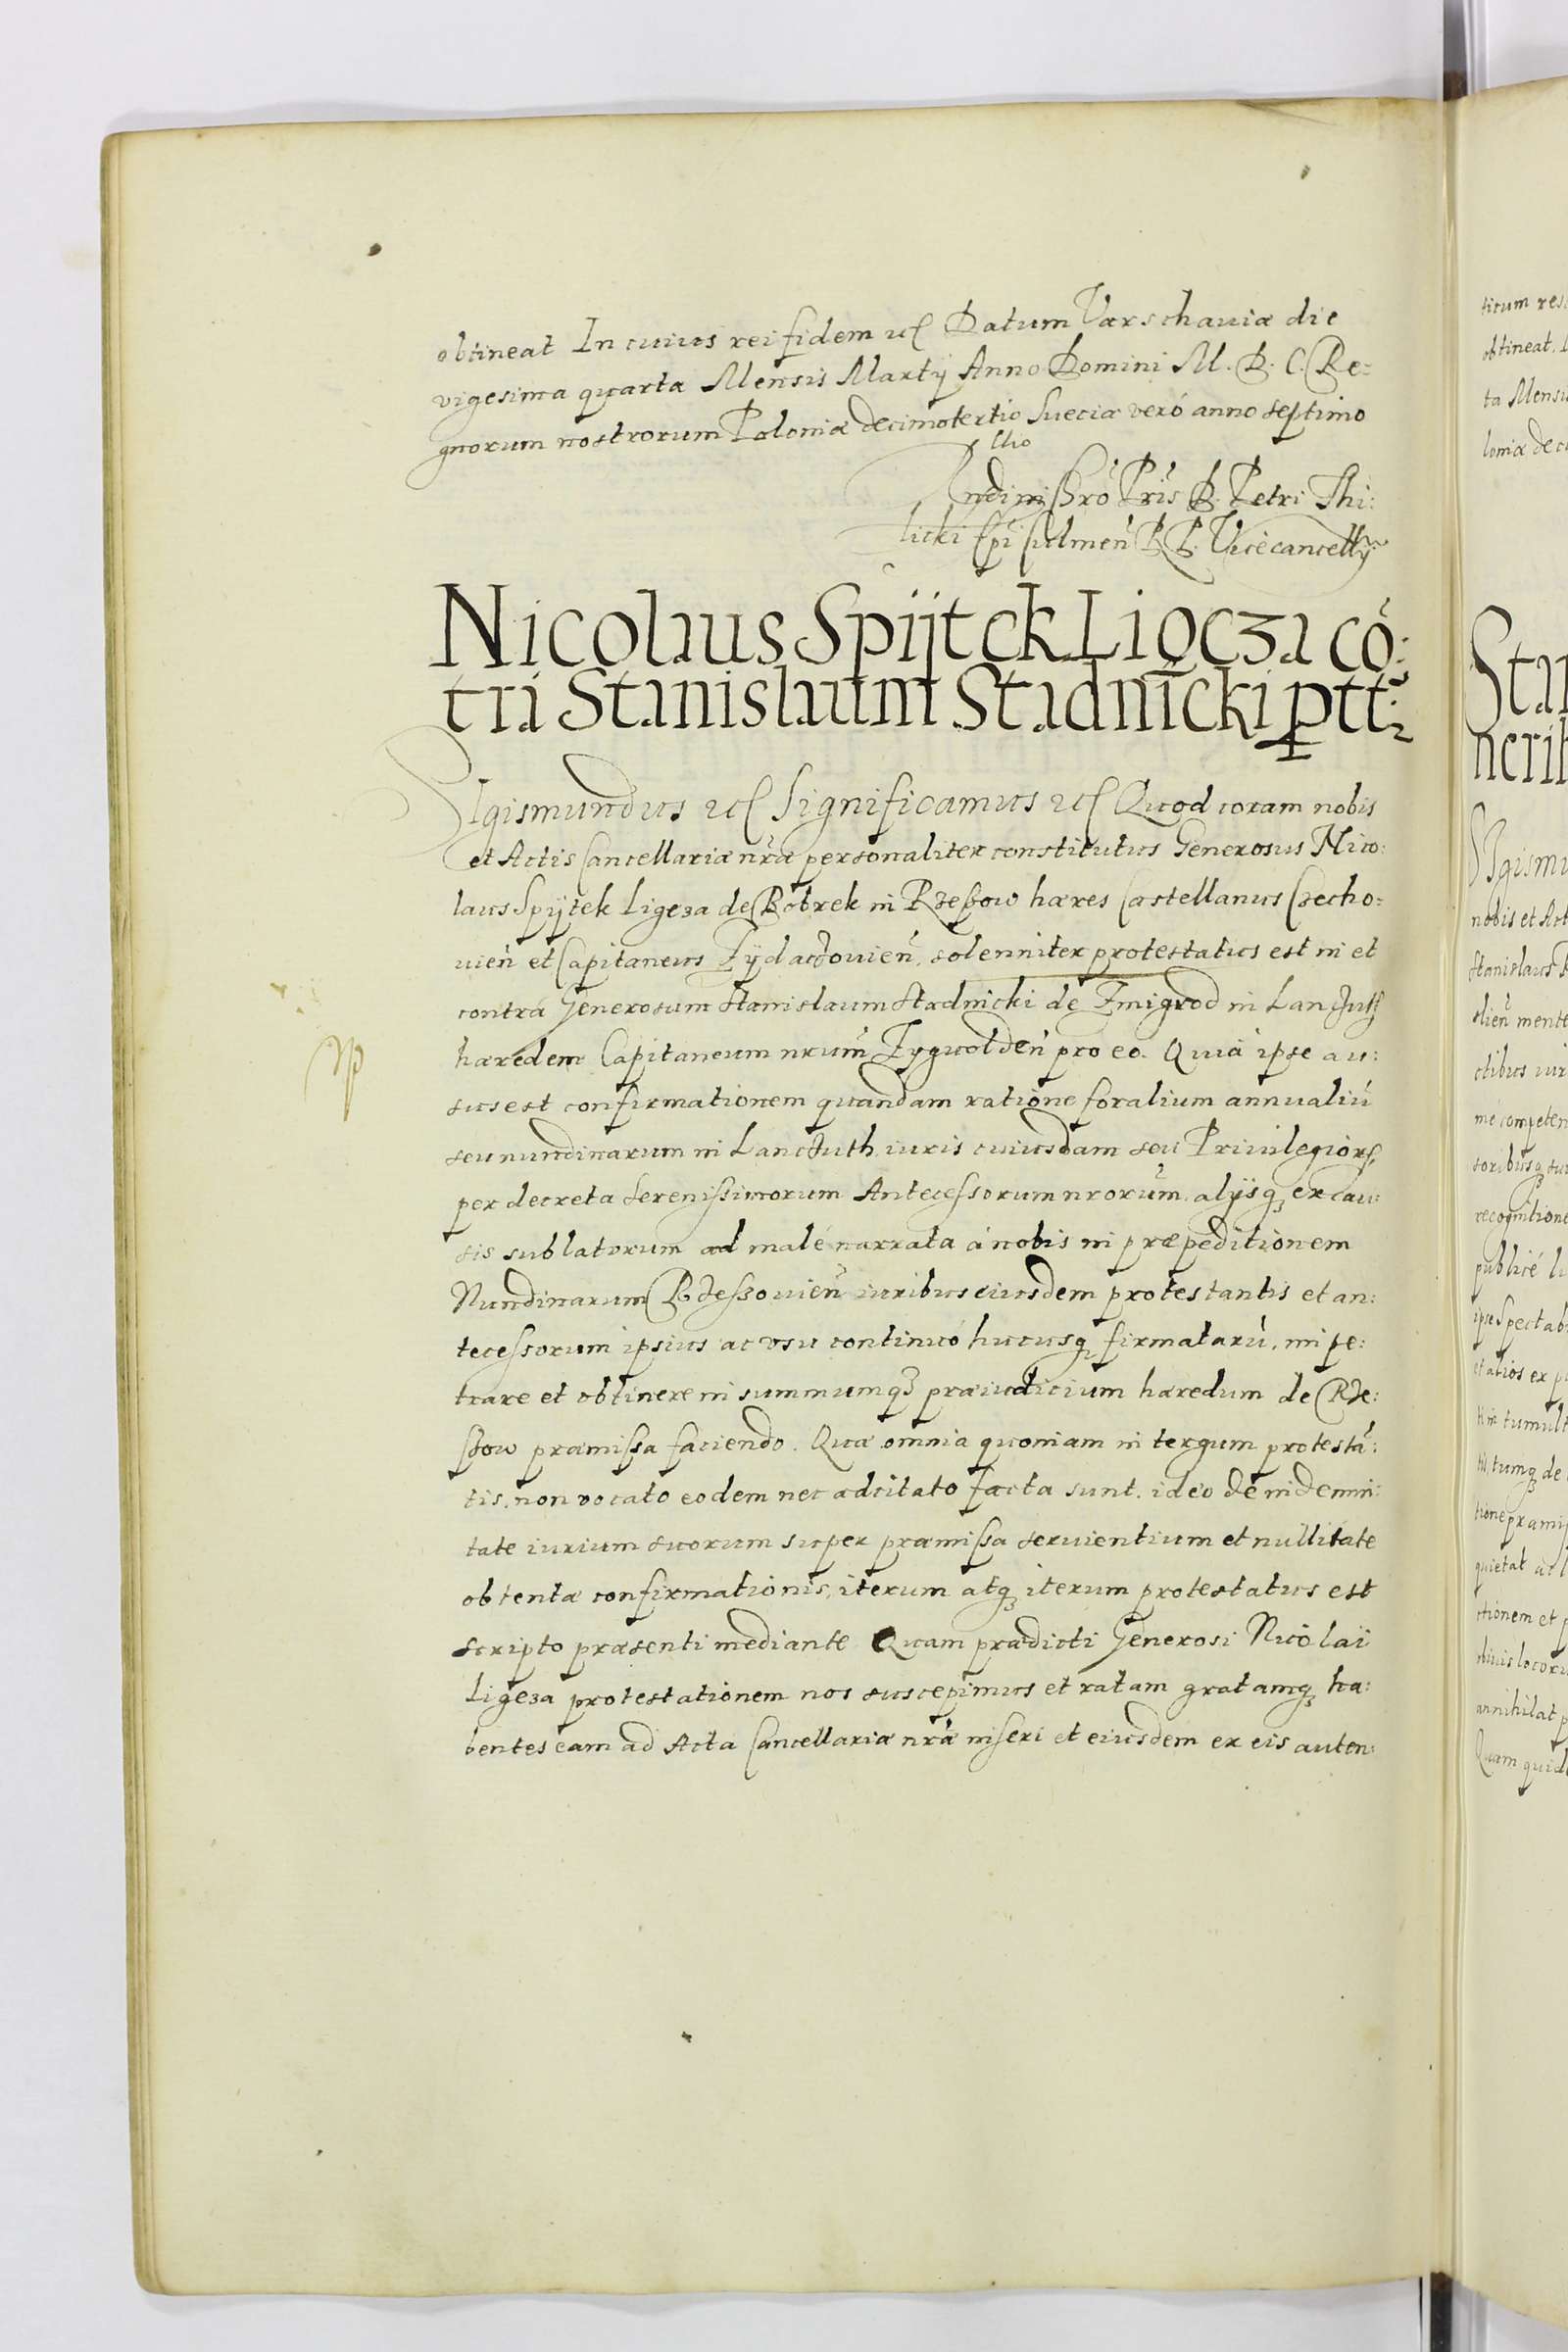 obtineat In cuius rei fidem etc Datum Varschauiæ die
vigesima quarta Mensis Martij Anno Domini M. D. C. Re=
gnorum nostrorum Poloniæ decimotertio Sueciæ veró anno septimo
P. Petri Thi:
licki Epi Culmen̄ R P. Vicecancellȳ
Nicolaus Spijtek Ligęza cō:
tra Stanislaum Stadnicki ptt̄
Sigismundus etc Significamus etc Quod coram nobis
et Actis Cancellariæ nr̄æ personaliter constitutus Generosus Nico:
laus Spijtek Ligeza de Bobrek in Rzeßow hæres Castellanus Czecho=
uien̄ et Capitaneus Zÿdaczouien̄, solenniter protestatus est in et
contra Generosum Stanislaum Stadnicki de Zmigrod in Lanczuth
hæredem Capitaneum nrum̄ Zyguolden̄ pro eo. Quia ipse au:
sus est confirmationem quandam ratione foralium annualiū
seu nundinarum in Lanczuth iuris cuiusdam seu Priuilegiorʒ
per decreta Serenissimorum Antecessorum nrorum̄, alijsqʒ ex cau:
sis sublatorum ad malé narrata á nobis in præpeditionem
Nundinarum Rzeszouien̄ iuribus eiusdem protestantis et an:
tecessorum ipsius ac vsu continuó hucusqʒ firmatarū, impe:
trare et obtinere in summumqʒ præiudicium hæredum de Rze:
ßow præmissa faciendo. Quæ omnia quoniam in tergum protestā:
tis, non vocato eodem nec adcitato facta sunt, ideo de indemni:
tate iurium suorum super præmissa seruientium et nullitate
obtentæ confirmationis, iterum atqʒ iterum protestatus est
scripto præsenti mediante Quam prædicti Generosi Nicolai
Ligeza protestationem nos suscepimus et ratam gratamqʒ ha:
bentes eam ad Acta Cancellariæ nr̄æ inseri et eiusdem ex eis auten: